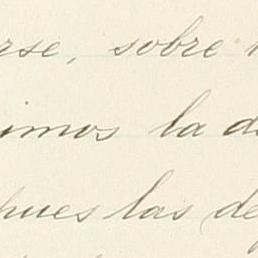 rse, sobre
imos la d
pues las de